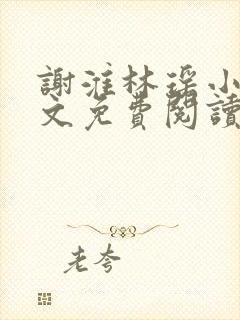 謝淮林瑶小
文免費閱讀
老夸